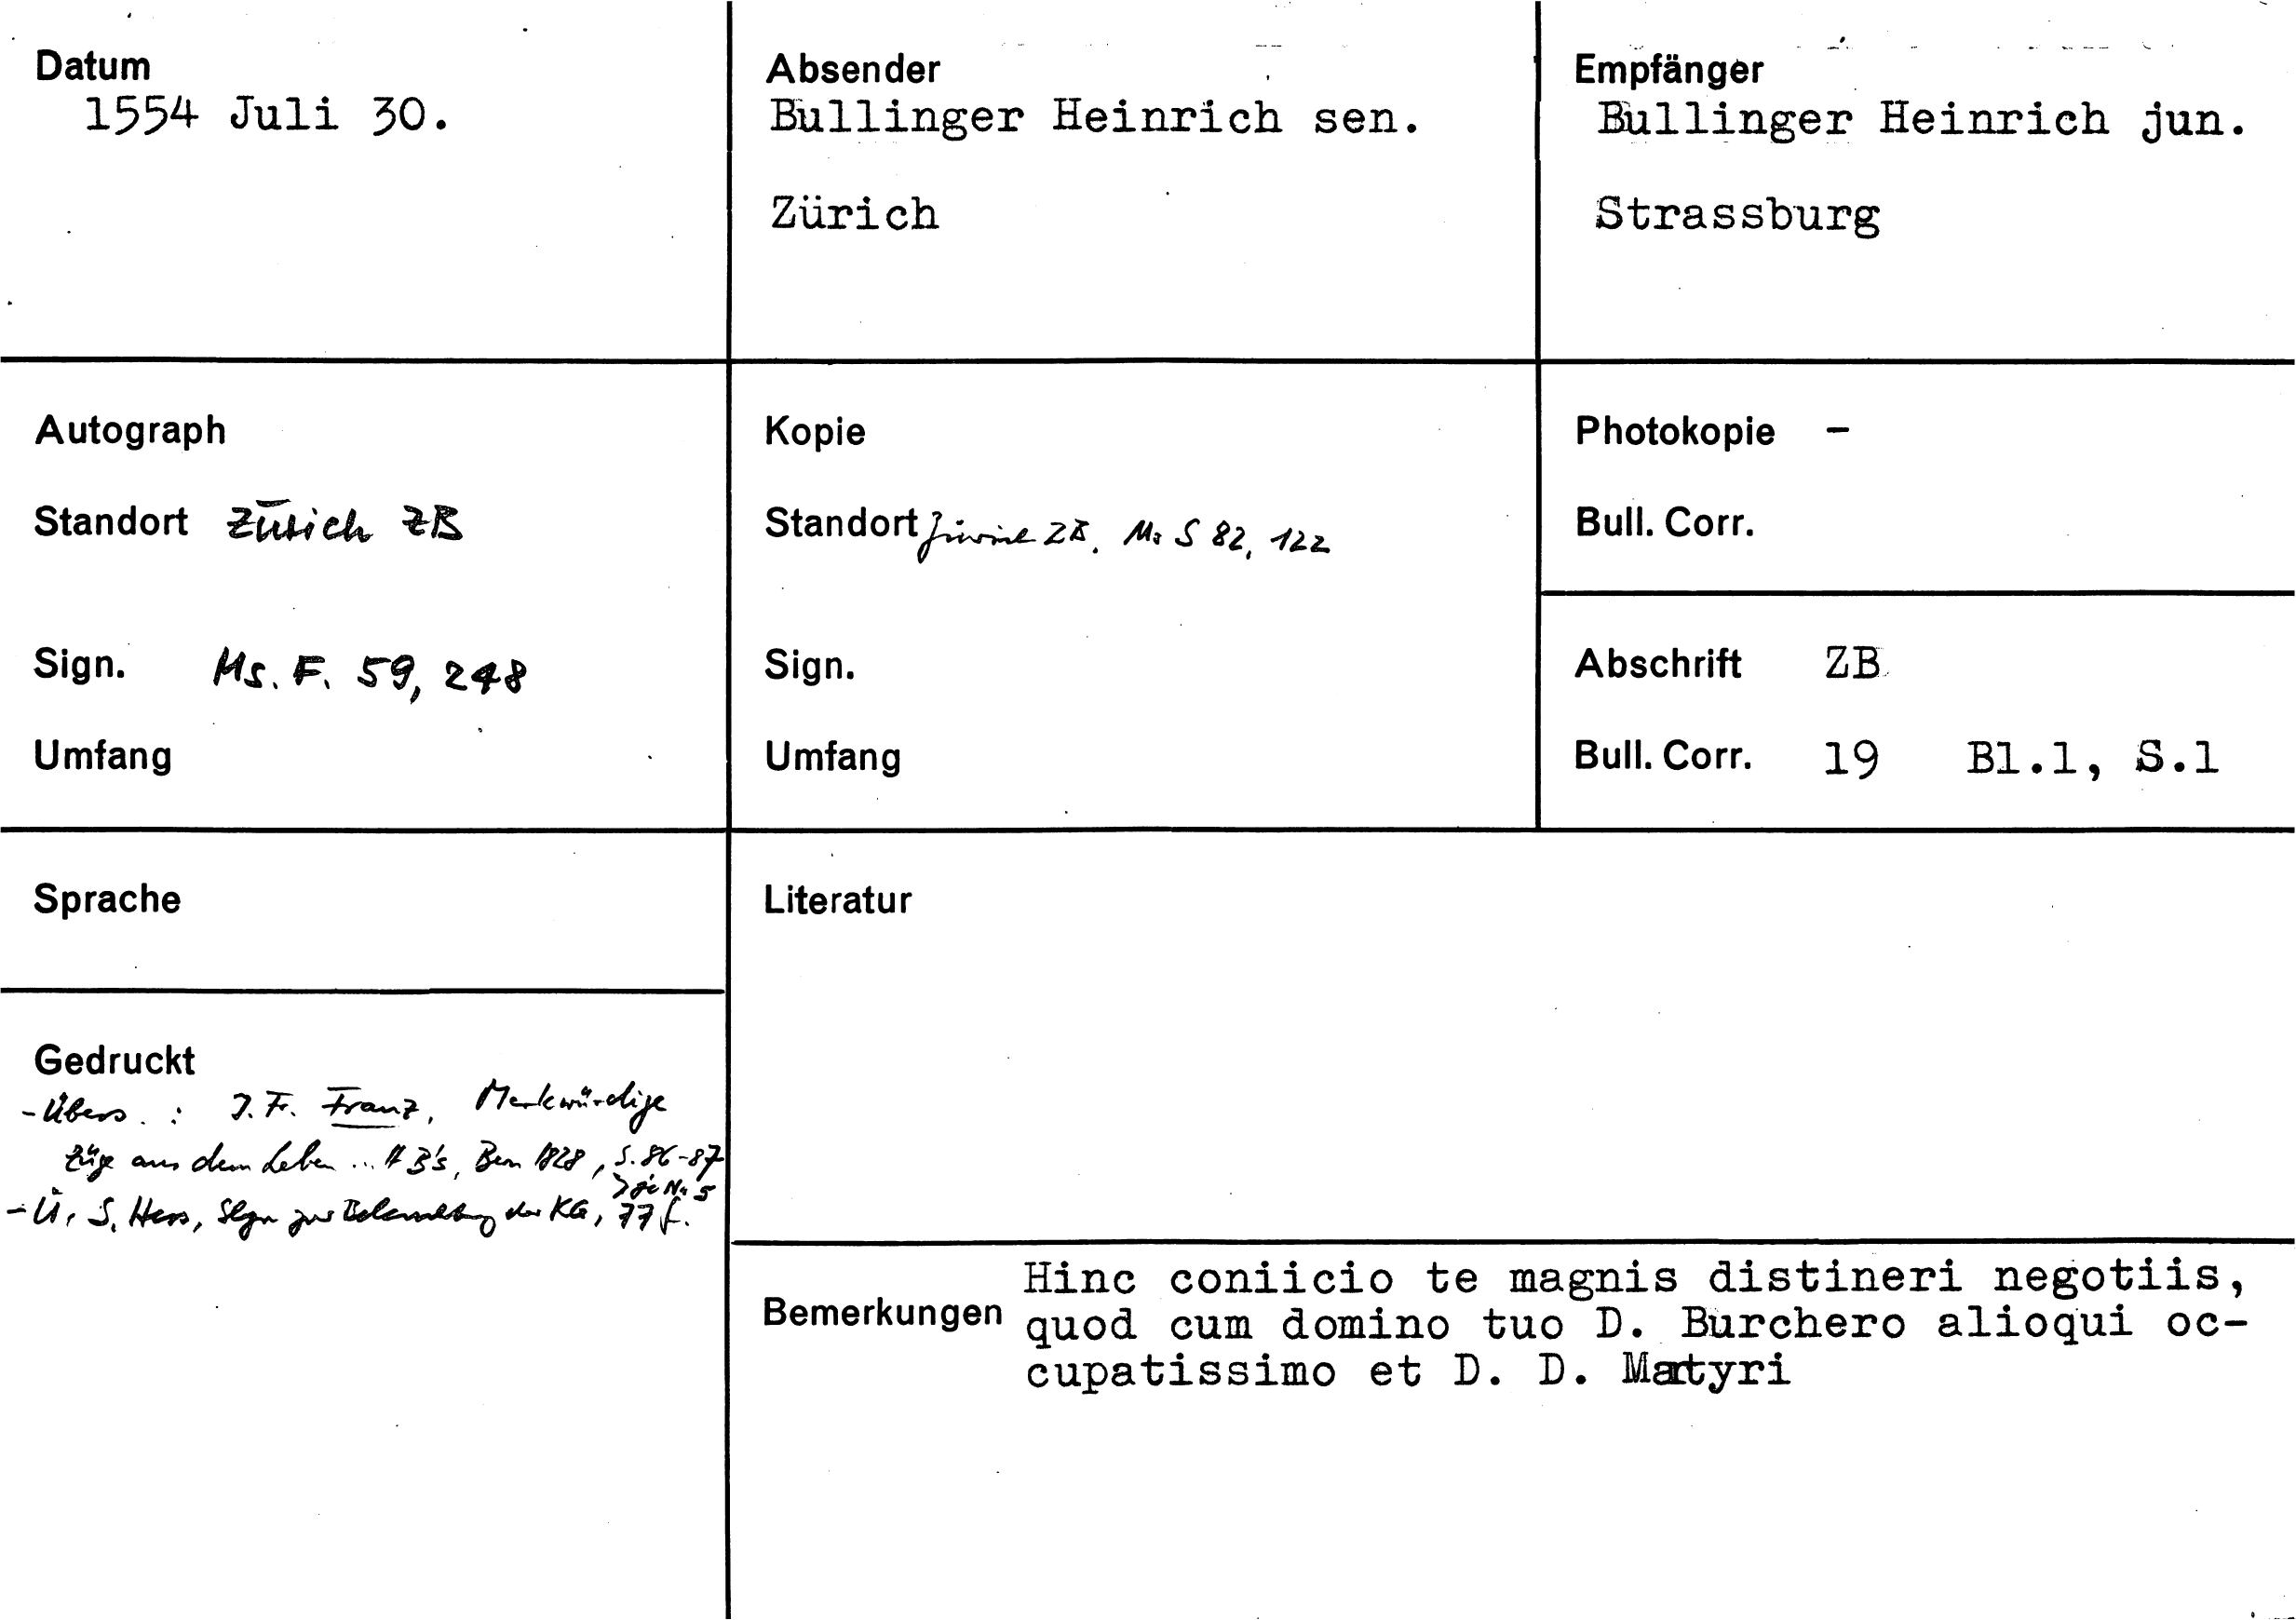 Datum
1554 Juli 30.
Absender
Bullinger Heinrich sen.
Zürich
Empfänger
Bullinger Heinrich jun.
Strassburg
Autograph
Standort Zürich ZB
Sign. Ms. F. 59, 248
Umfang
Kopie
Standort Zürich ZB, Ms S 82, 122
Sign.
Umfang
Photokopie –
Bull. Corr.
Abschrift ZB
Bull. Corr. 19 Bl.1, S.1
Sprache
Literatur
Gedruckt
- Übers. : J. Fr. Franz, Merkwürdige
Züge aus dem Leben ... H B's, Bern 1828, S. 86-87
Nr 5
- Ü, S. Hess, der KG, 77 f.
Bemerkungen
Hinc coniicio te magnis distineri negotiis,
quod cum domino tuo D. Burchero alioqui oc-
cupatissimo et D. D. Martyri